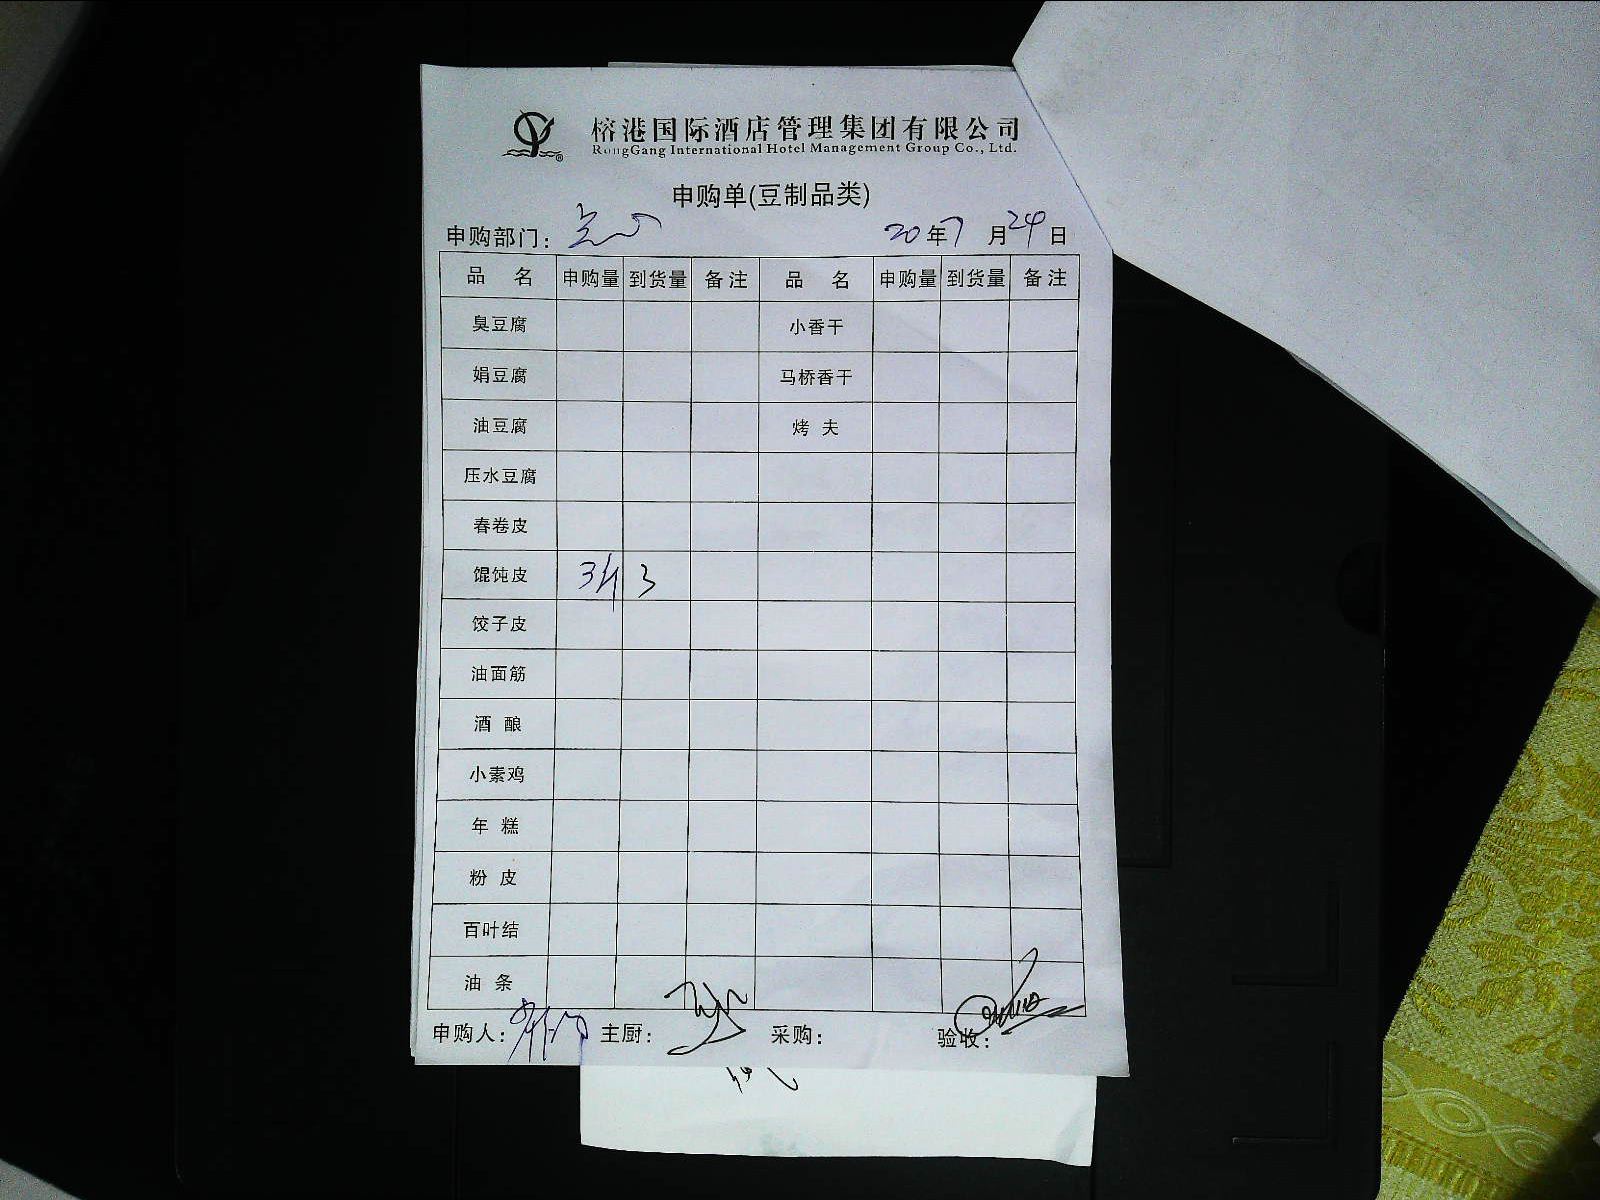 榕港国际酒店管理集团有限公司
RongGang International Hotel Management Group Co., Ltd.
申购单(豆制品类)
申购部门:
20年7月24日
品 名 申购量 到货量 备注 品 名 申购量 到货量 备注
臭豆腐 小香干
娟豆腐 马桥香干
油豆腐 烤 夫
压水豆腐
春卷皮
馄饨皮 3斤 3
饺子皮
油面筋
酒 酿
小素鸡
年 糕
粉 皮
百叶结
油 条
申购人: 主厨: 采购: 验收: